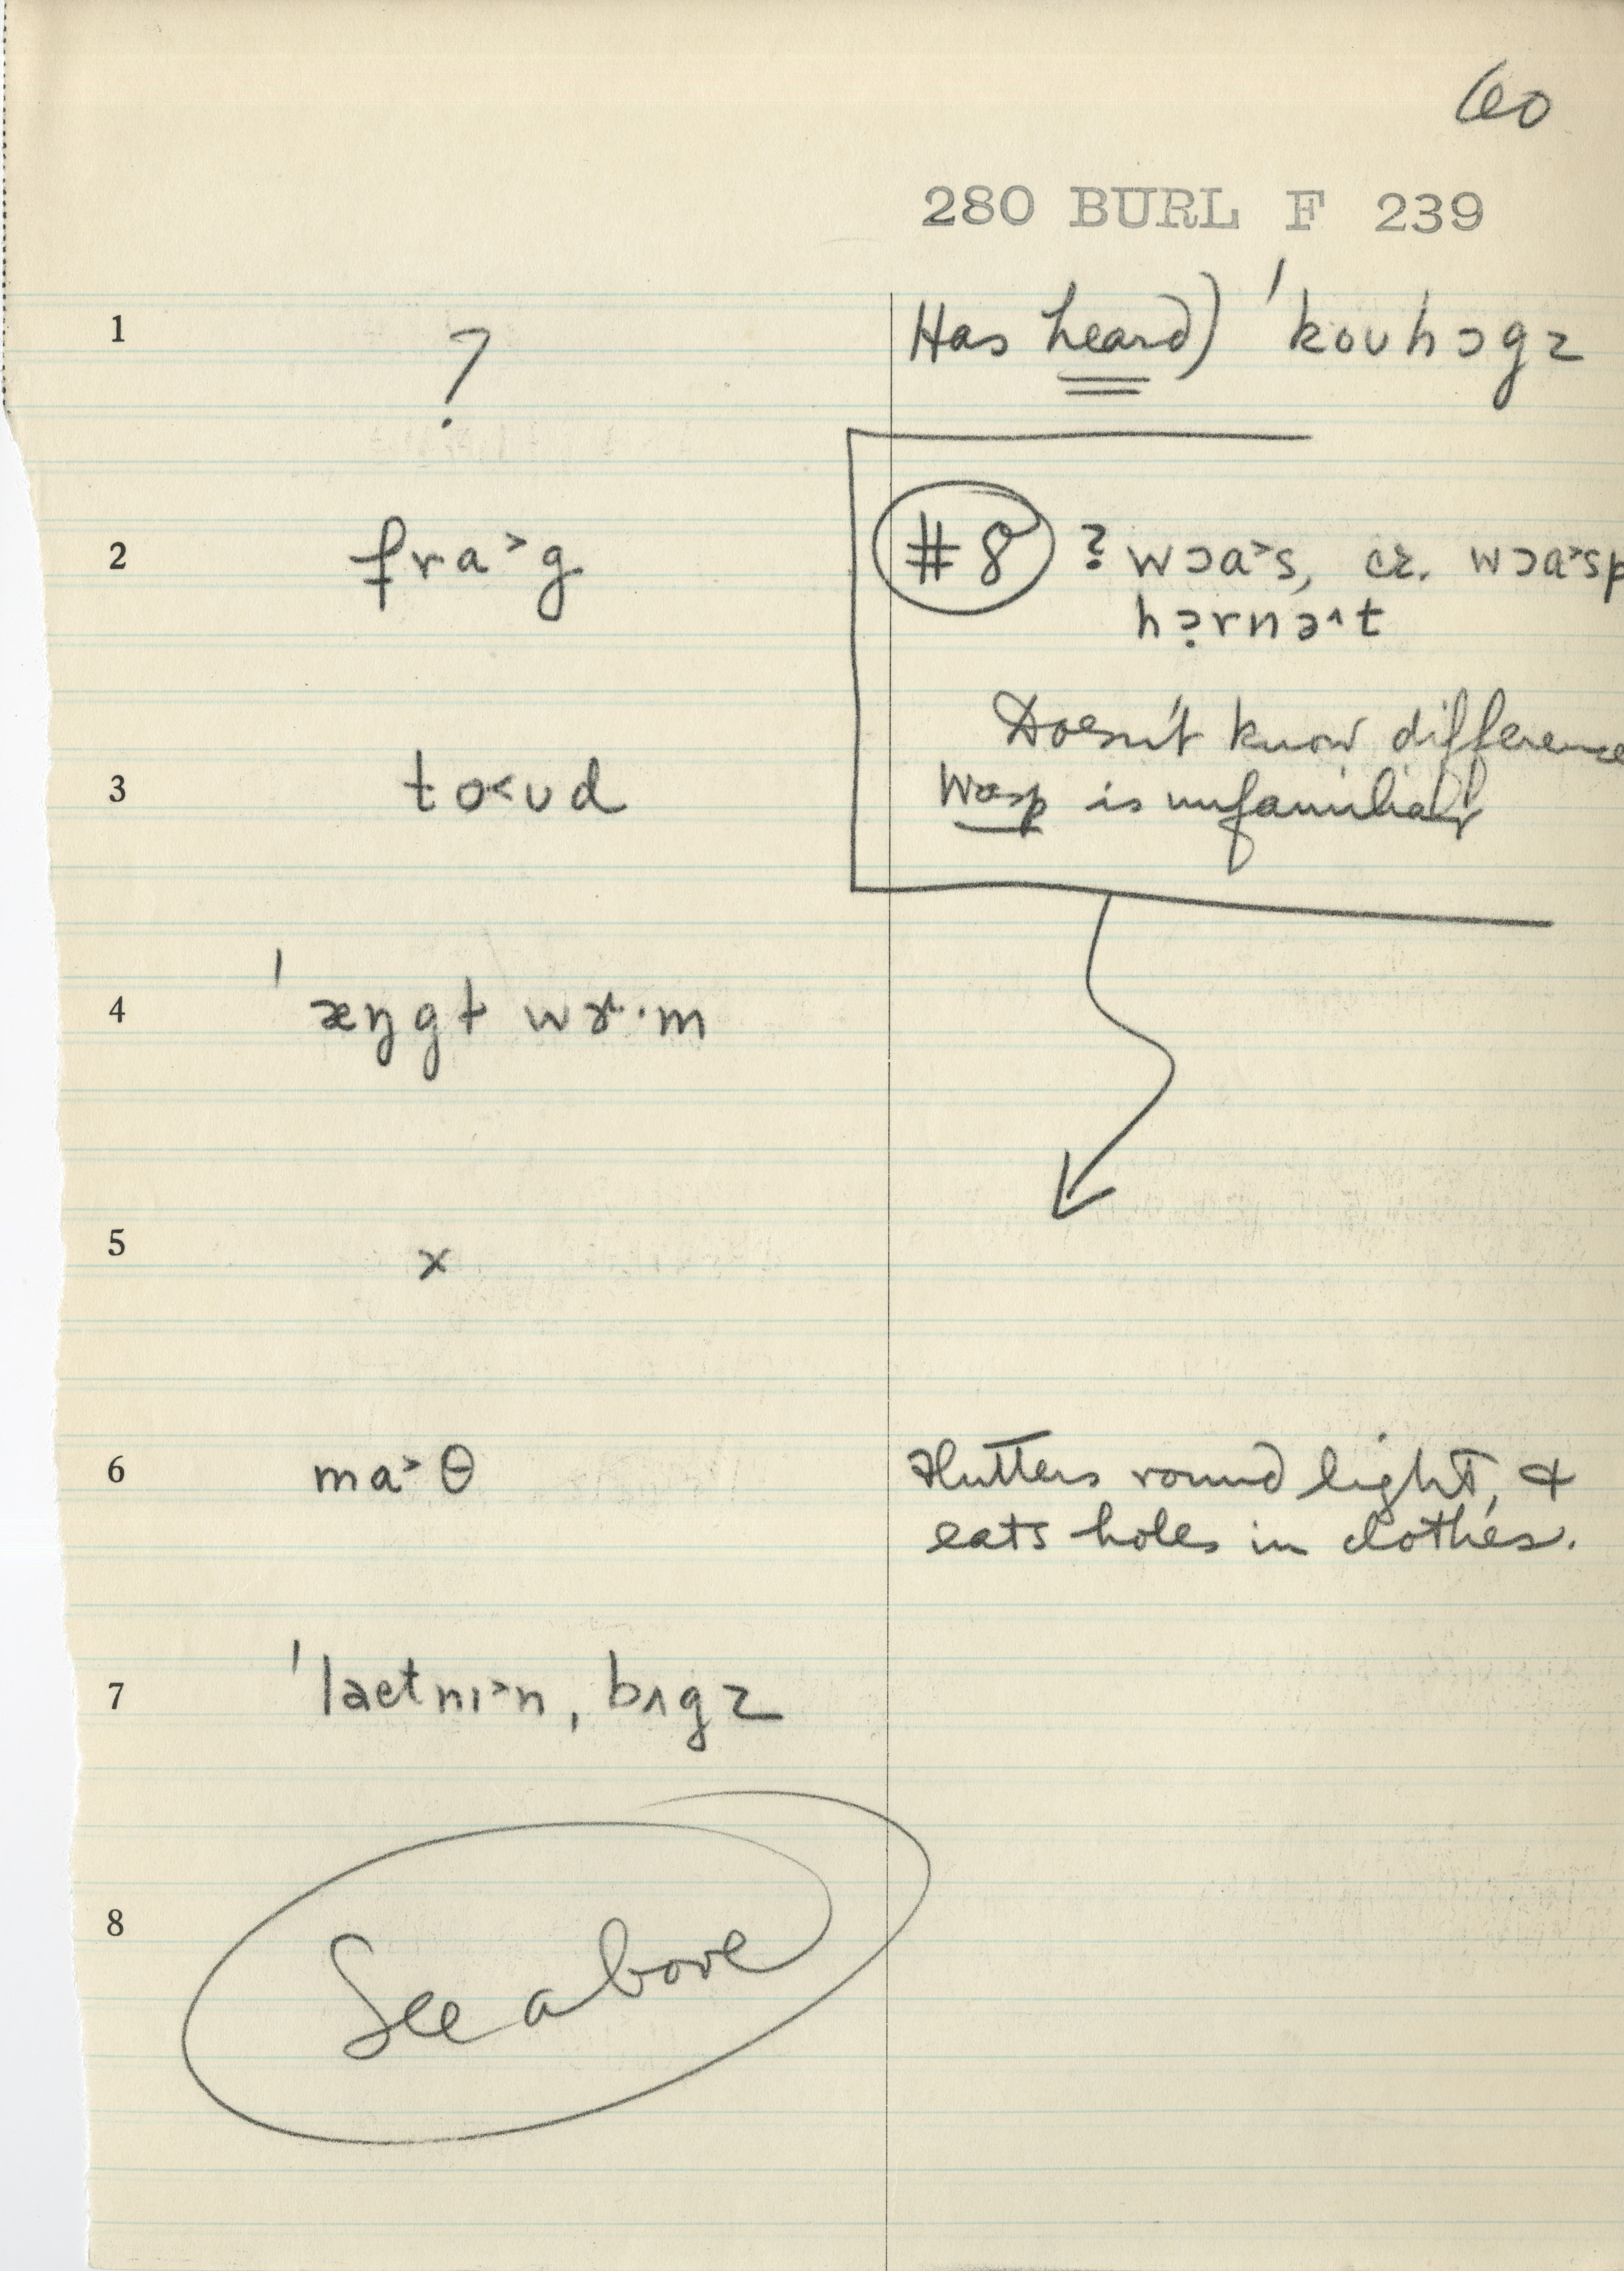 60
280 BURL F 239
1 ? Has heard) ˈkoʊhɔgz
2 fra˃g #8 ? wɔa˃s, cr. wɔa˃sp
hɔ̣rnə˄t
Doesn't know difference
3 to˂ʊd Wasp is unfamiliar
4 ˈæŋgɫ wɚ·m
5 x
6 ma˃θ Flutters round light, &
eats holes in clothes.
7 ˈlaetnɪ˃n, bʌgz
8 See above